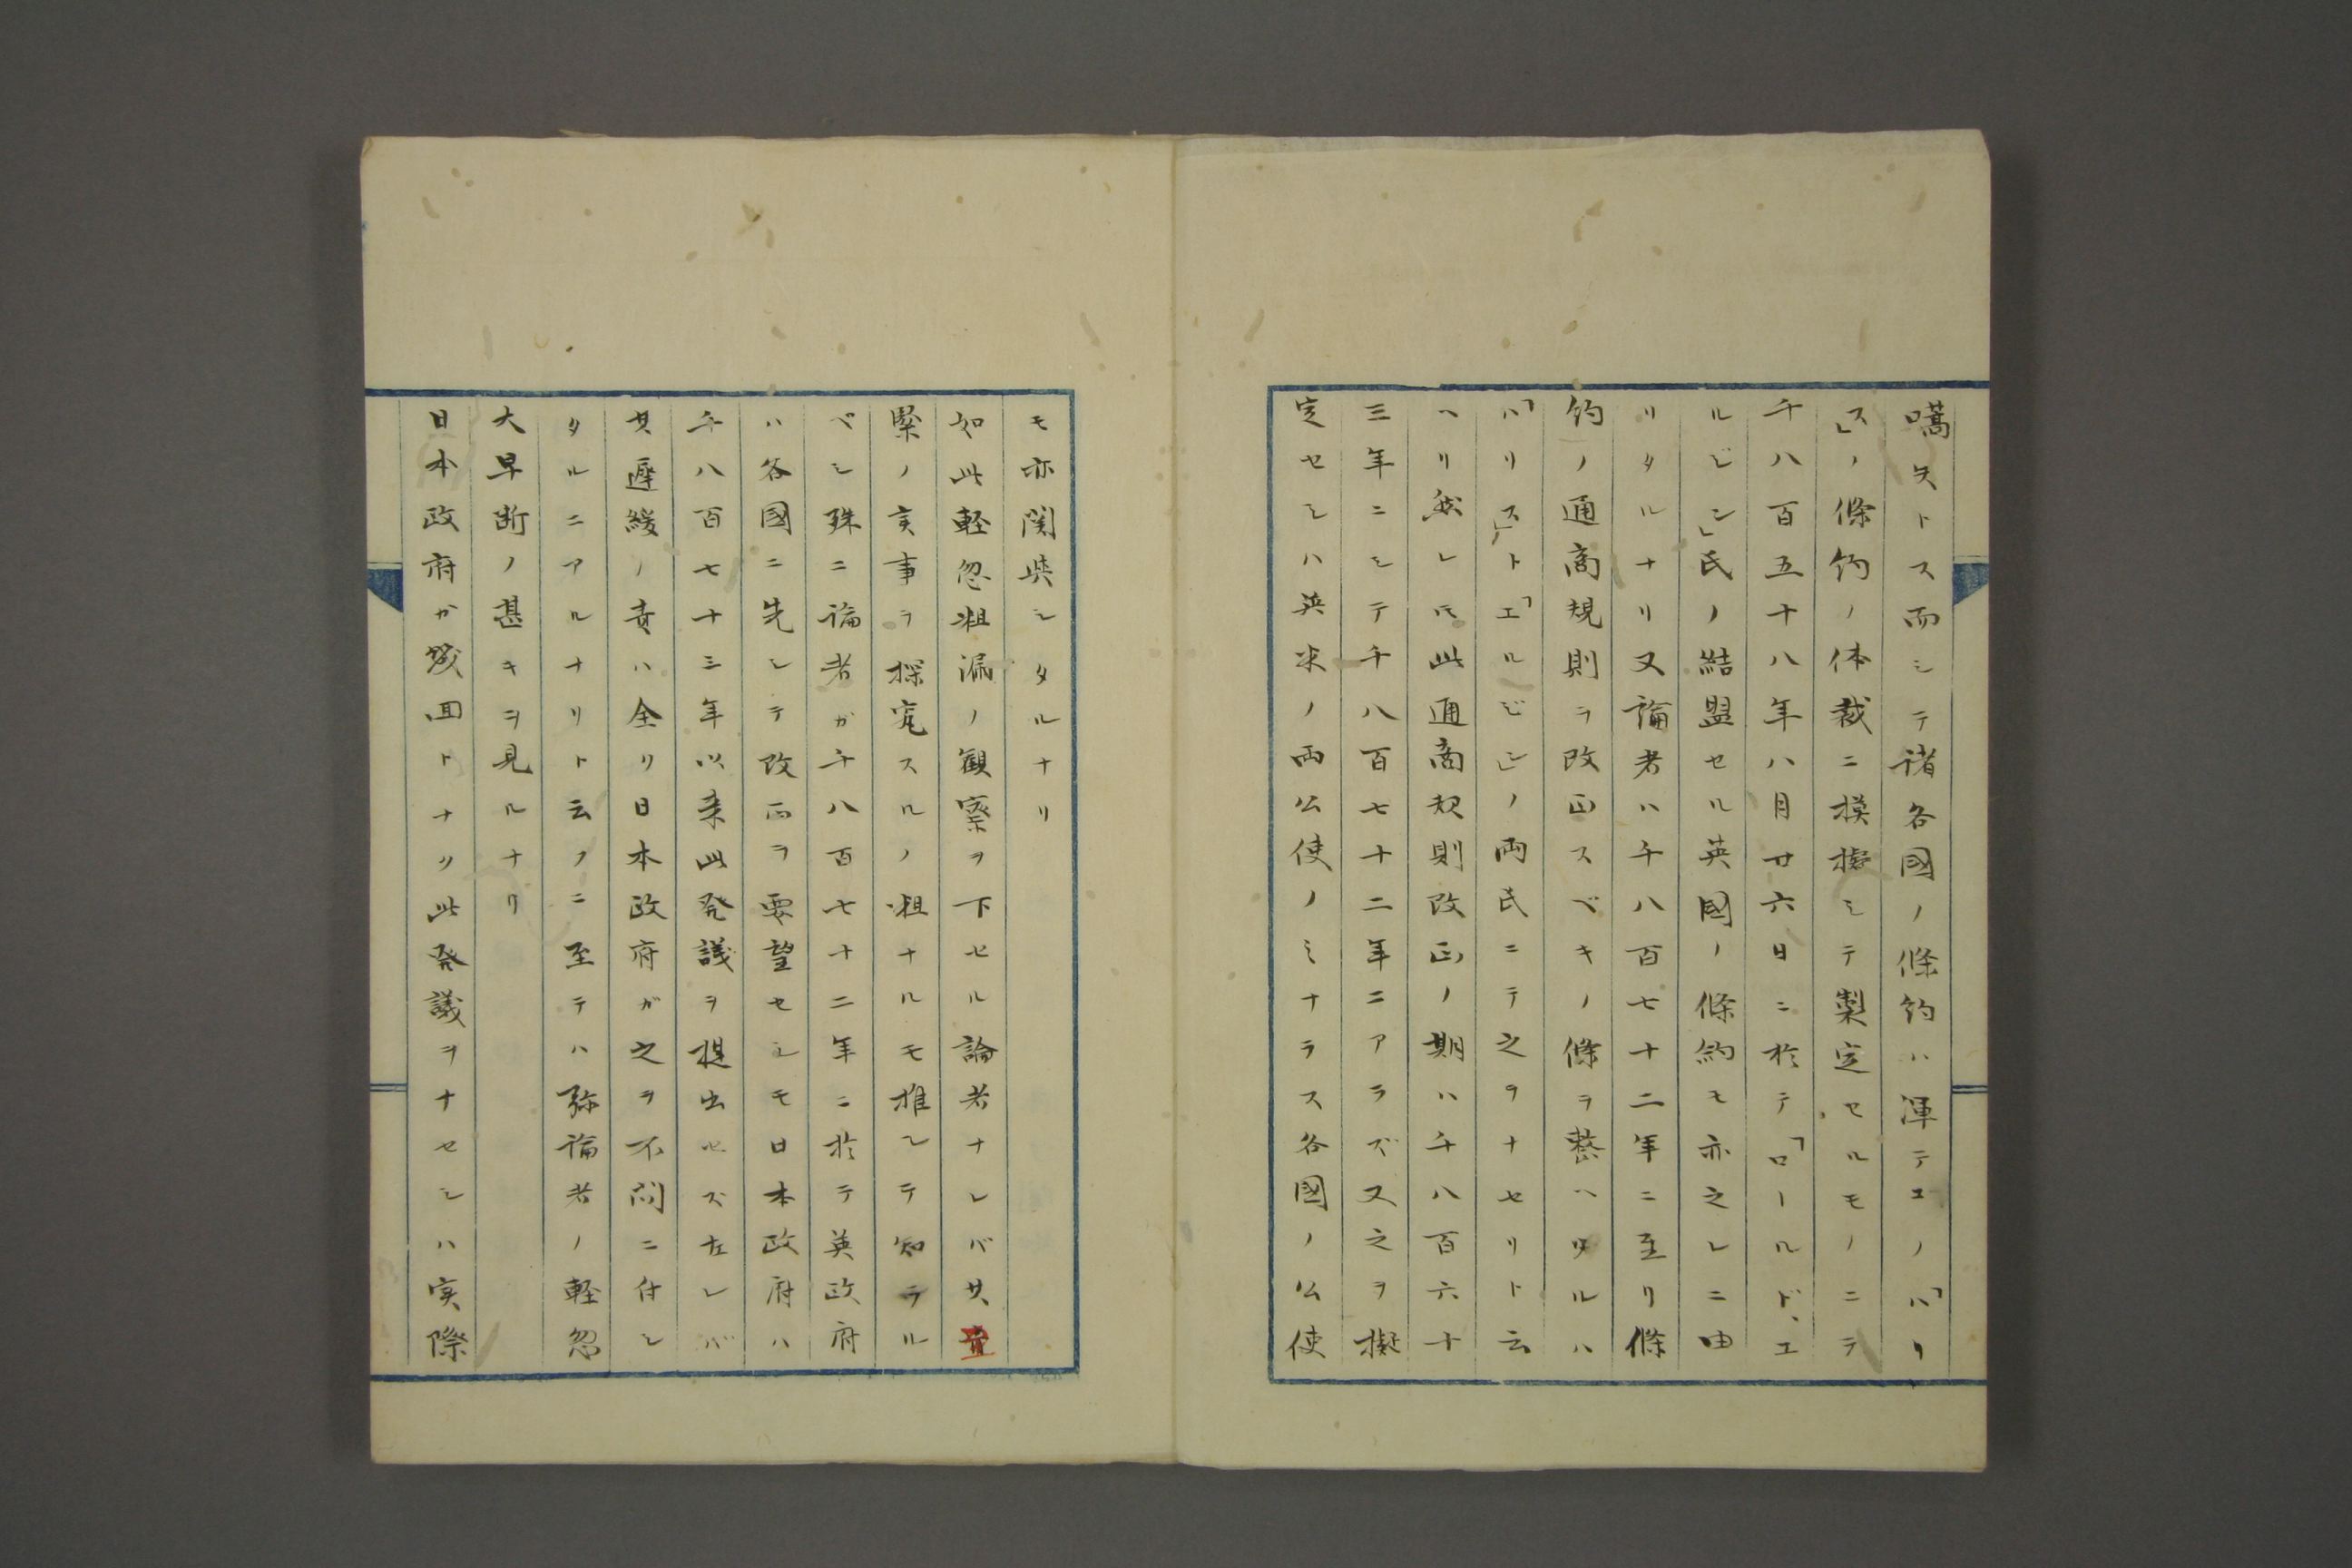 嚆矢トス而シテ諸各國ノ條約ハ渾テエノ「ハリ
ス」ノ條約ノ体裁ニ模擬シテ製定セルモノニテ
千八百五十八年八月廿六日ニ於テ「ロールド、エ
ルジン」氏ノ結盟セル英國ノ條約モ亦之レニ由
リタルナリ又論者ハ千八百七十二年ニ至リ條
約ノ通商規則ヲ改正スベキノ條ヲ整ヘタルハ
「ハリス」ト「エルジン」ノ両氏ニテ之ヲナセリト云
ヘリ然レ𪜈此通商規則改正ノ期ハ千八百六十
三年ニシテ千八百七十二年ニアラズ又之ヲ擬
定セシハ英米ノ両公使ノミナラス各國ノ公使
モ亦関與シタルナリ
如此軽忽粗漏ノ観察ヲ下セル論者ナレバ其
緊ノ実事ヲ探究スルノ粗ナルモ推シテ知ラル
ベシ殊ニ論者ガ千八百七十二年ニ於テ英政府
ハ各國ニ先シテ改正ヲ要望セシモ日本政府ハ
千八百七十三年以来此発議ヲ提出セズ左レバ
其遅緩ノ責ハ全リ日本政府ガ之ヲ不問ニ付シ
タルニアルナリト云フニ至テハ弥論者ノ軽忽
大早断ノ甚キヲ見ルナリ
日本政府カ幾回トナリ此発議ヲナセシハ実際